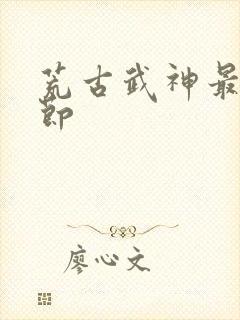 荒古武神最
节
廖心文